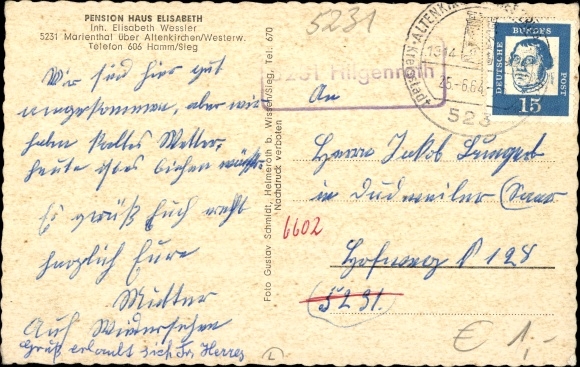 PENSION HAUS ELISABETH
Inh. Elisabeth Wessler
5231 Marienthal über Altenkirchen/Westerw.
Telefon 606 Hamm/Sieg
5231
Wir sind hier gut
angekommen, aber wir
haben kaltes Wetter,
heute ist es bischen
Es grüßt Euch recht
herzlich Eure
Mutter
Auf Wiedersehen
Gruß erlaubt sich Frs Herres
Foto Gustav Schmidt, Helmeroth b. Wissen/Sieg, Tel. 670
Nachdruck verboten
5231 Hilgenroth
25.-6.64
523
DEUTSCHE BUNDES POST
15
An
Herrn Jakob
in Dudweiler (Saar
6602
Hofweg 128
(5231)
€ 1,-